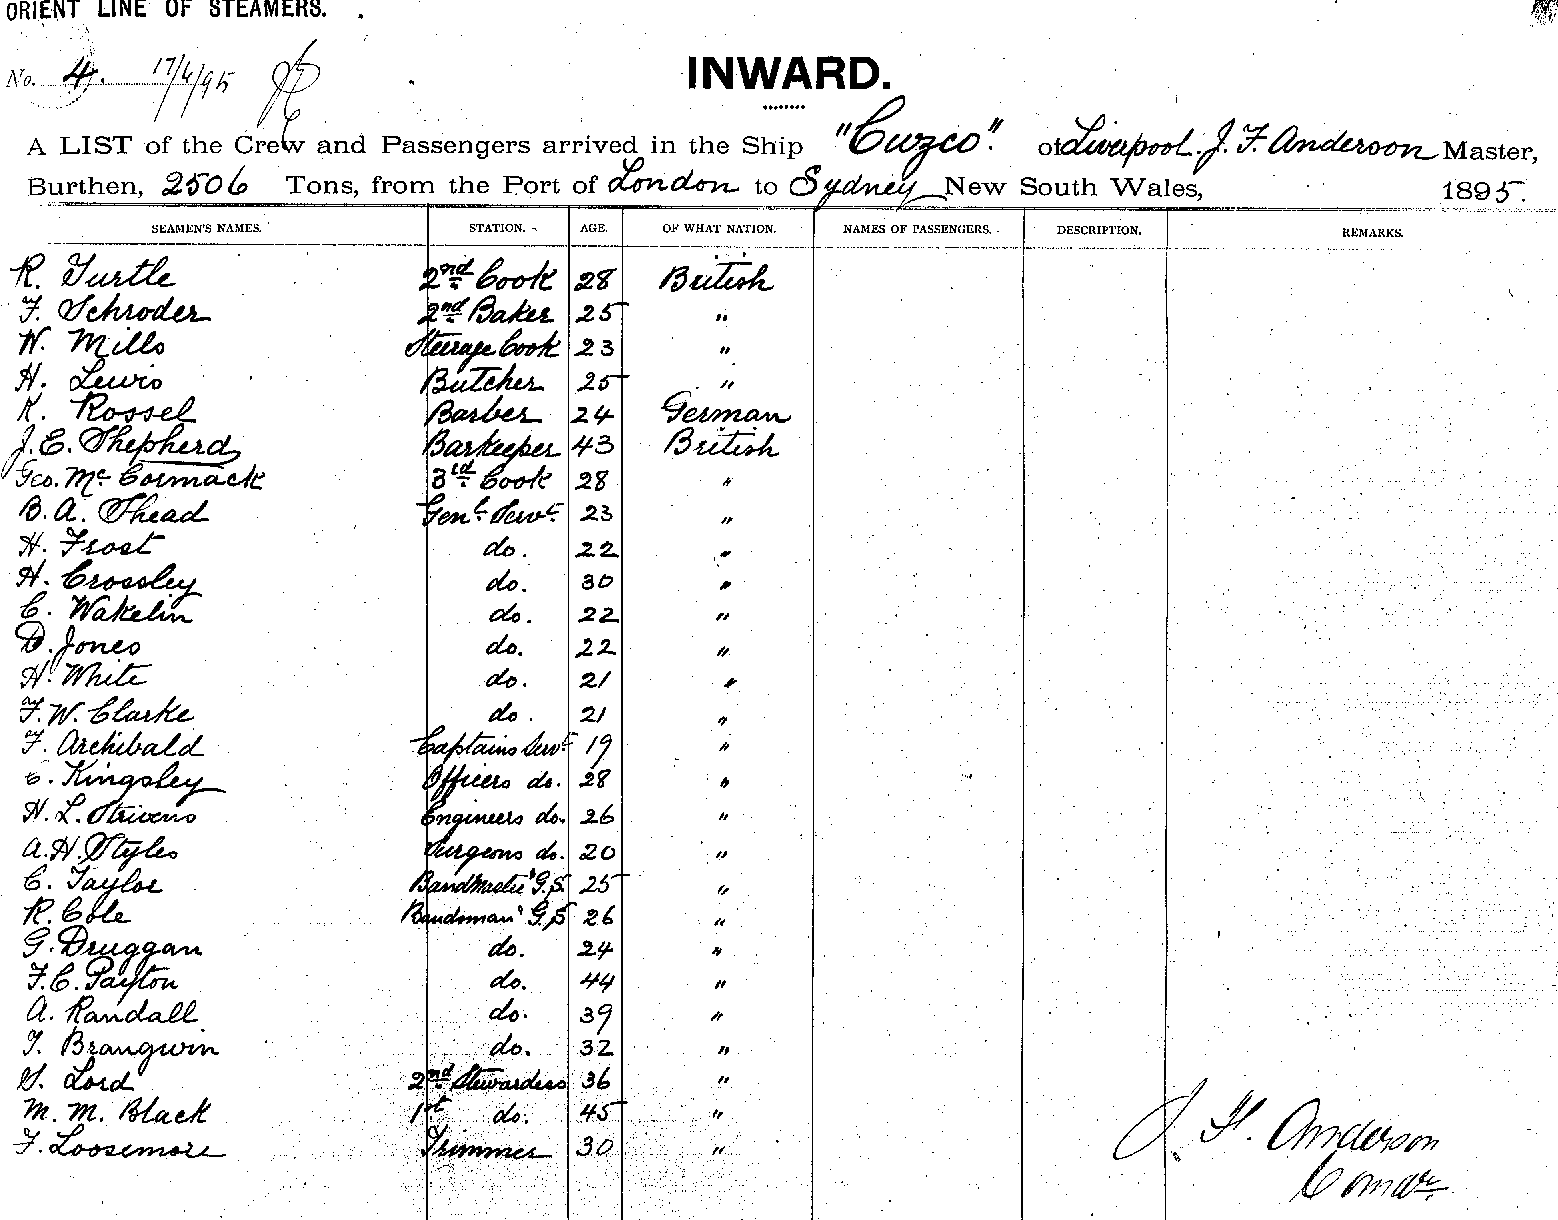 ORIENT LINE OF STEAMERS.
No. 4. 17/4/95
INWARD.
A LIST of the Crew and Passengers arrived in the Ship "Cuzco". of Liverpool. J. F. Anderson Master,
Burthen, 2506 Tons, from the Port of London to Sydney New South Wales, 1895.
SEAMEN'S NAMES. STATION. AGE. OF WHAT NATION. NAMES OF PASSENGERS. DESCRIPTION. REMARKS.
R. Turtle 2nd Cook 28 British
F. Schroder 2nd Baker 25 "
W. Mills Steerage Cook 23 "
H. Lewis Butcher 25 "
K. Rossel Barber 24 German
J. E. Shepherd Barkeeper 43 British
Geo. Mc Cormack 3rd Cook 28 "
B. A. Thead Genl. Servt. 23 "
H. Frost do. 22 "
H. Crossley do. 30 "
C. Wakelin do. 22 "
D. Jones do. 22 "
H. White do. 21 "
F. W. Clarke do. 21 "
F. Archibald Captains Servt 19 "
C. Kingsley Officers do. 28 "
H. L. Strivens Engineers do. 26 "
A. H. Styles Surgeons do. 20 "
C. Taylor Bandmaster G.S. 25 "
R. Cole Bandsman G.S 26 "
G. Druggan do. 24 "
F. C. Payton do. 44 "
A. Randall do. 39 "
T. Brangwin do. 32 "
S. Lord 2nd Stewardess 36 "
M. M. Black 1st do. 45 "
F. Loosemore Trimmer 30 "
J. F. Anderson
Comdr